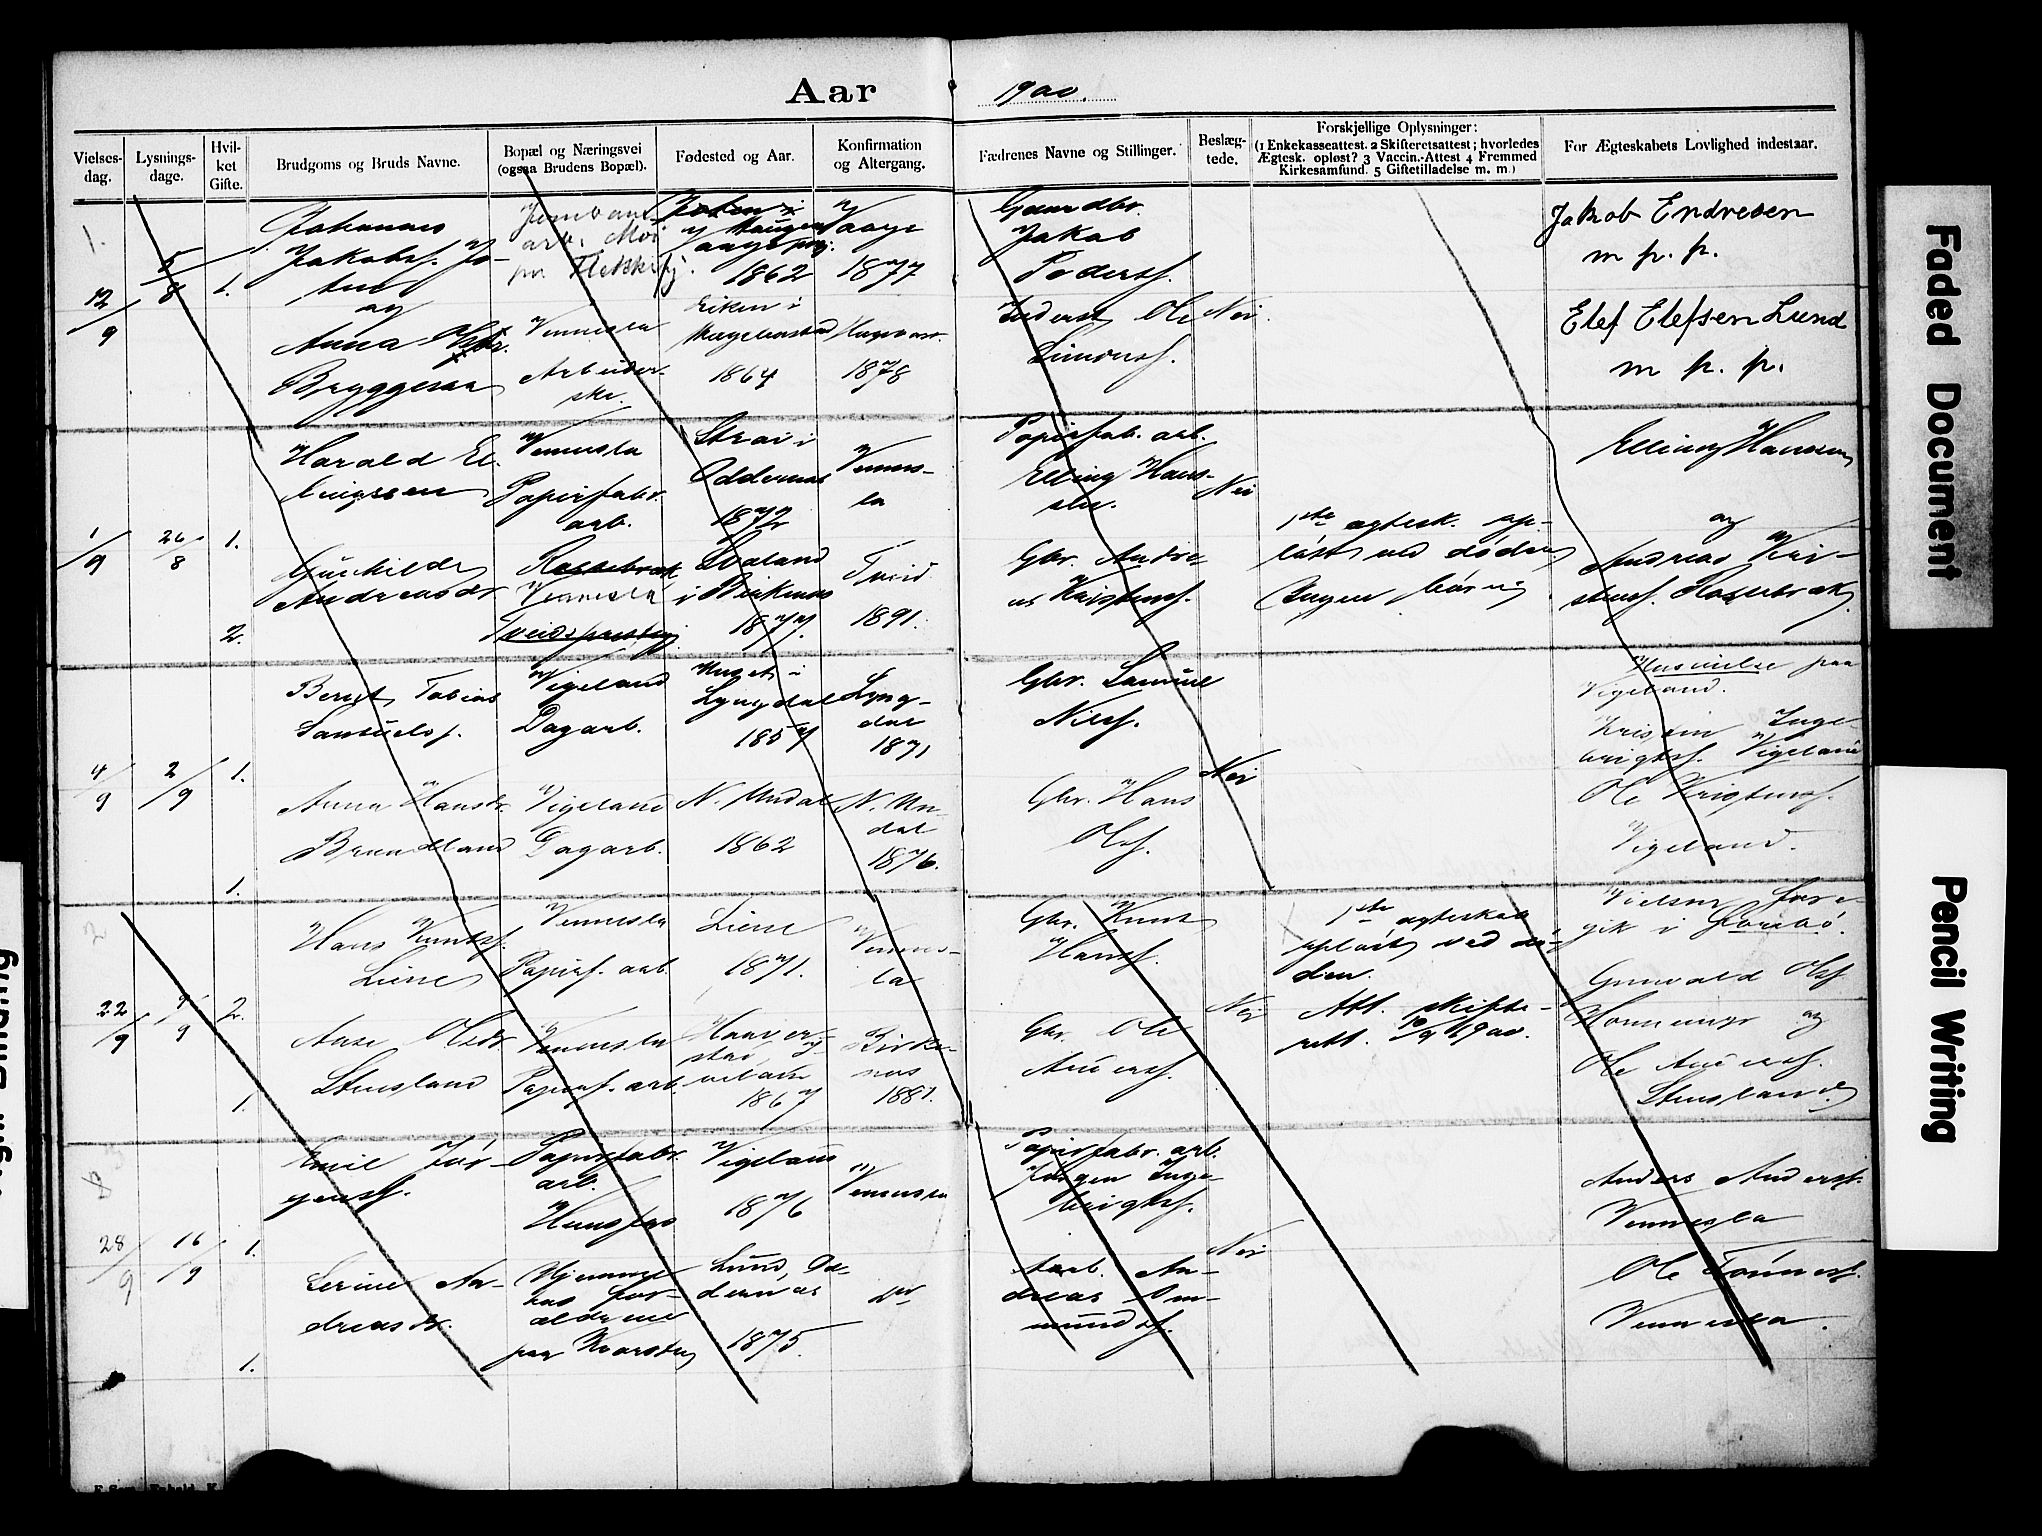 Aar 1900.
Vielses-
dag.
Lysnings-
dage.
Hvil-
ket
Gifte.
Brudgoms og Bruds Navne.
Bopæl og Næringsvei
(ogsaa Brudens Bopæl).
Fødested og Aar.
Konfirmation
og Altergang.
Fædrenes Navne og Stillinger.
Beslæg-
tede.
Forskjellige Oplysninger:
(1 Enkekasseattest. 2 Skifteretsattest; hvorledes
Ægtesk. opløst? 3 Vaccin.-Attest 4 Fremmed
Kirkesamfund. 5 Giftetilladelse m. m.)
For Ægteskabets Lovlighed indestaar.
1.
12/9
5/8
1.
Johannes
Jakobs. Jo-
og
Anna
Bryggesaa
arb. Moi
Vennesla
Arbeider-
ske.
1862
Eiken i
1864
Vaage
1877
1878
Gaardbr.
Jakob
Peders.
Inderst Ole
Simons.
Nei.
Jakob Endresen
m. p. p.
Elef Elefsen Lund
m. p. p.
1/9
26/8
1.
2.
Harald El-
lingsen
Gunhilde
Andreasdr.
Vennesla
Papirfabr.
arb.
Vennesla
Tveidsprestegj.
Strai i
Oddernes
1872
i Birkenes
1877.
Vennes-
la
Tveid
1891.
Papirfab. arb.
Elling Hans-
sen.
Gbr. Andre-
as Kristens.
Nei
1ste egtesk. op-
løst ved døden
Ingen børn
Elling Hanssen
og
Andreas Kri-
stens. Rossebræk
4/9
2/9
1.
1.
Bernt Tobias
Samuels.
Anna Hansdr.
Brundland
Vigeland
Dagarb.
Vigeland
Dagarb.
Lyngdal
1857
N. Undal
1862
Lyng-
dal
1871
N. Un-
dal
1876.
Gbr. Samuel
Nils.
Gbr. Hans
Ols.
Nei
Husvielse paa
Vigeland.
Kristen Inge-
brigts. Vigeland
Ole Kristens.
Vigeland.
2
22/9
9/9
2.
1.
Hans Knuts.
Liene
Anne Olsdr.
Stensland
Vennesla
Papirf. arb.
Vennesla
Papirf. arb.
Liene
1871.
1867
Vennes-
la
Birke-
nes
1881.
Gbr. Knut
Hans.
Gbr. Ole
Anders.
Nei
1ste egteskab
opløst ved dø-
den.
Att. skifte-
rett. 10/9 1900.
Vielsen fore-
gik i
Gunvald Ols.
og
Ole Anders.
Stensland
3
28/9
16/9
1.
1.
Emil Jør-
gens.
Serine An-
dreasdr.
Papirfabr.
arb.
Hunsfos
Hjemme
hos for-
ældrene
paa Kvarstein
Vigeland
1876
Lund, Od-
dernes
1875.
Vennesla
do
Papirfabr. arb.
Jørgen Inge-
brigts.
Aarb. An-
dreas Om-
munds.
Nei
Anders Anders.
Vennesla
Ole Tønnes.
Vennesla.
Faded Document
Pencil Writing